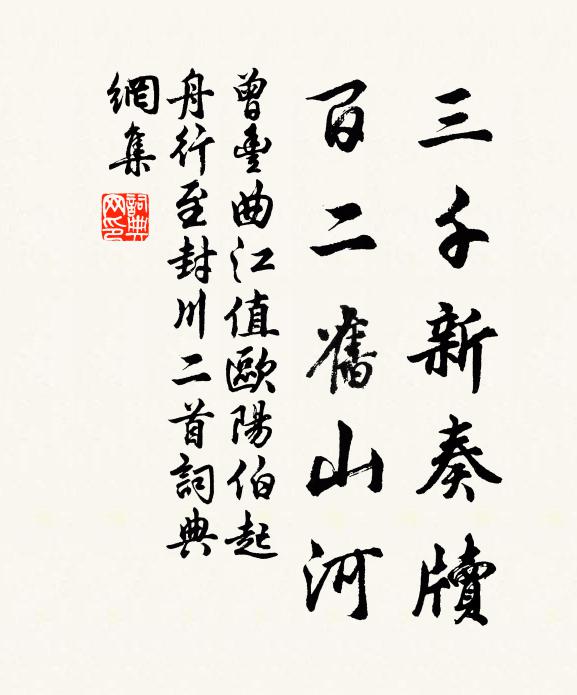 三千新奏牘
百二舊山河
曾豐曲江值歐陽伯起
舟行至封川二首詞典
網集
詞典网印